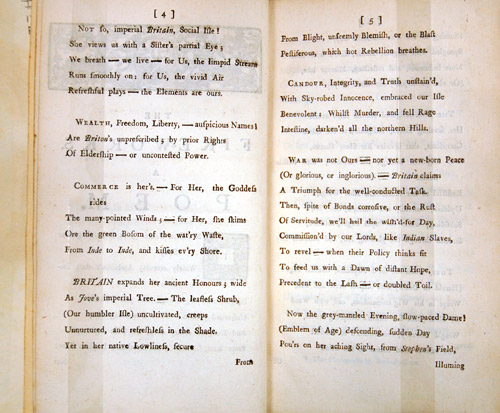 [ 4 ]
Not so, imperial Britain, Social Isle!
She views us with a Sister's partial Eye;
We breath — we live — for Us, the limpid Stream
Runs smoothly on; for Us, the vivid Air
Refreshful plays — the Elements are ours.
Wealth, Freedom, Liberty, — auspicious Names!
Are Briton's unprescribed; by prior Rights
Of Eldership — or uncontested Power.
Commerce is her's. — For Her, the Goddess
rides
The many-pointed Winds; — for Her, she skims
Ore the green Bosom of the wat'ry Waste,
From Inde to Inde, and kisses ev'ry Shore.
BRITAIN expands her ancient Honours; wide
As Jove's imperial Tree. — The leafless Shrub,
(Our humbler Isle) uncultivated, creeps
Unnurtured, and refreshless in the Shade.
Yet in her native Lowliness, secure
From
[ 5 ]
From Blight, unseemly Blemish, or the Blast
Pestiferous, which hot Rebellion breathes.
Candour, Integrity, and Truth unstain'd,
With Sky-robed Innocence, embraced our Isle
Benevolent: Whilst Murder, and fell Rage
Intestine, darken'd all the northern Hills.
War was not Ours — nor yet a new-born Peace
(Or glorious, or inglorious). — Britain claims
A Triumph for the well-conducted Task.
Then, spite of Bonds corrosive, or the Rust
Of Servitude, we'll hail the wish'd-for Day,
Commission'd by our Lords, like Indian Slaves,
To revel — when their Policy thinks fit
To feed us with a Dawn of distant Hope,
Precedent to the Lash — or doubled Toil.
Now the grey-mantled Evening, slow-paced Dame!
(Emblem of Age) descending, sudden Day
Pou'rs on her aching Sight, from Stephen's Field,
Illuming